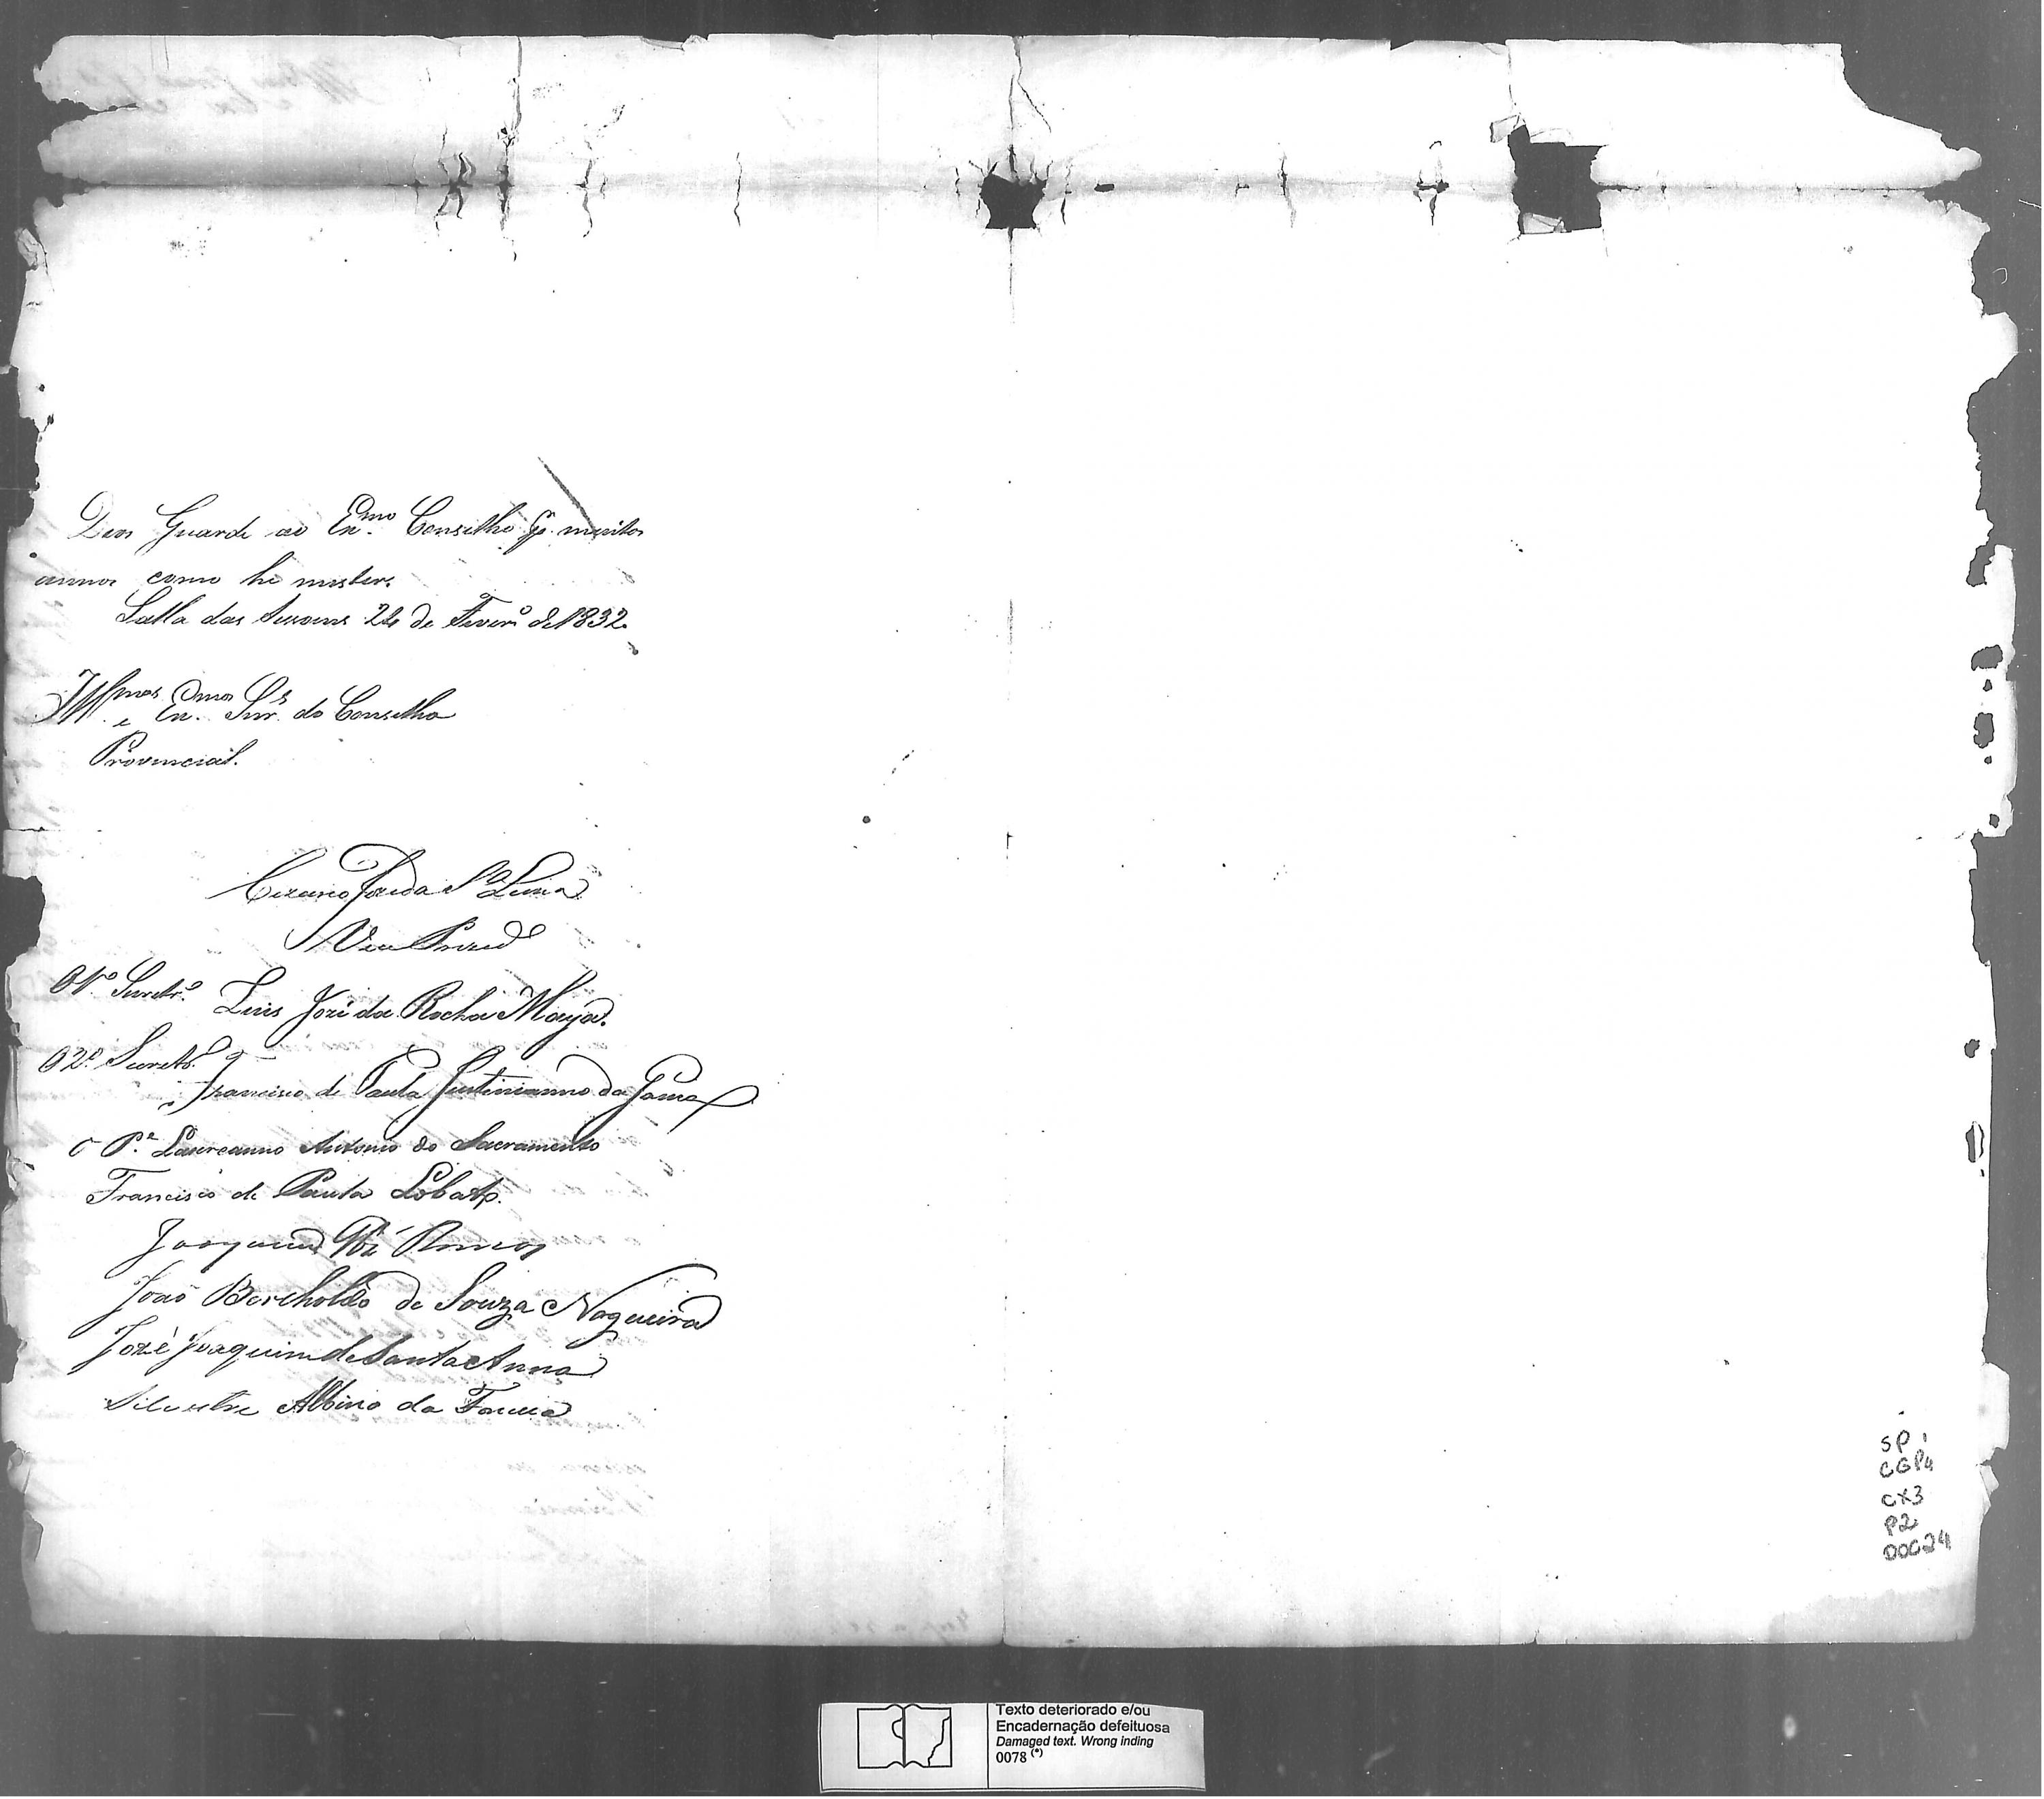 Deos Guarde ao Ex.mo Conselho por muitos
annos como he mister.
Salla das Sessoens 24 de Fever.o de 1832.
Ill.mos e Ex.mos Snr.s do Conselho
Provincial.
Vice Prezid.e
O 1.o Secretr.o Luis Jozé da Rocha Maya.
O 2.o Secretr.o
Francisco de Paula Justinianno da Gama
O P.e Laureanno Antonio do Sacramento
Francisco de Paula Lobato.
Joaquim Jozé Ramos
João Bertholdo de Souza Nogueira
Jozé Joaquim de Santa Anna
Silvestre Albino da Fonseca
SP 1
CGP4
CX3
P2
DOC24
Texto deteriorado e/ou
Encadernação defeituosa
Damaged text. Wrong inding
0078 (*)